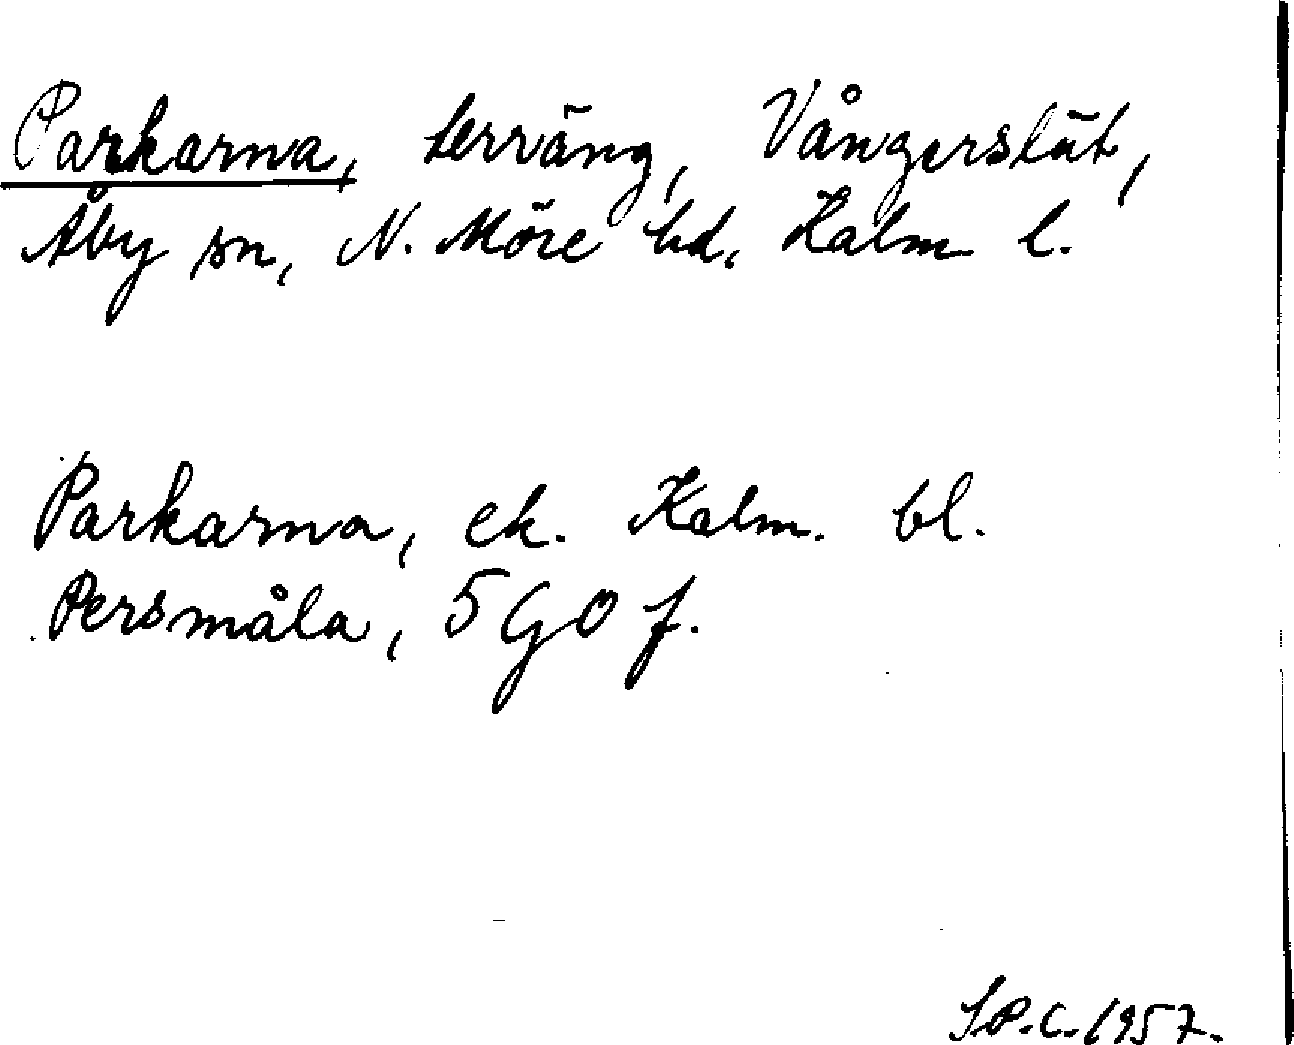 Parkarna, terräng, Vångerslät,
Åby sn, N. Möre hd, Kalm l.
Parkarna, ek. Kalm. bl.
Persmåla, 5 G O f.
S.P.C. 1957.